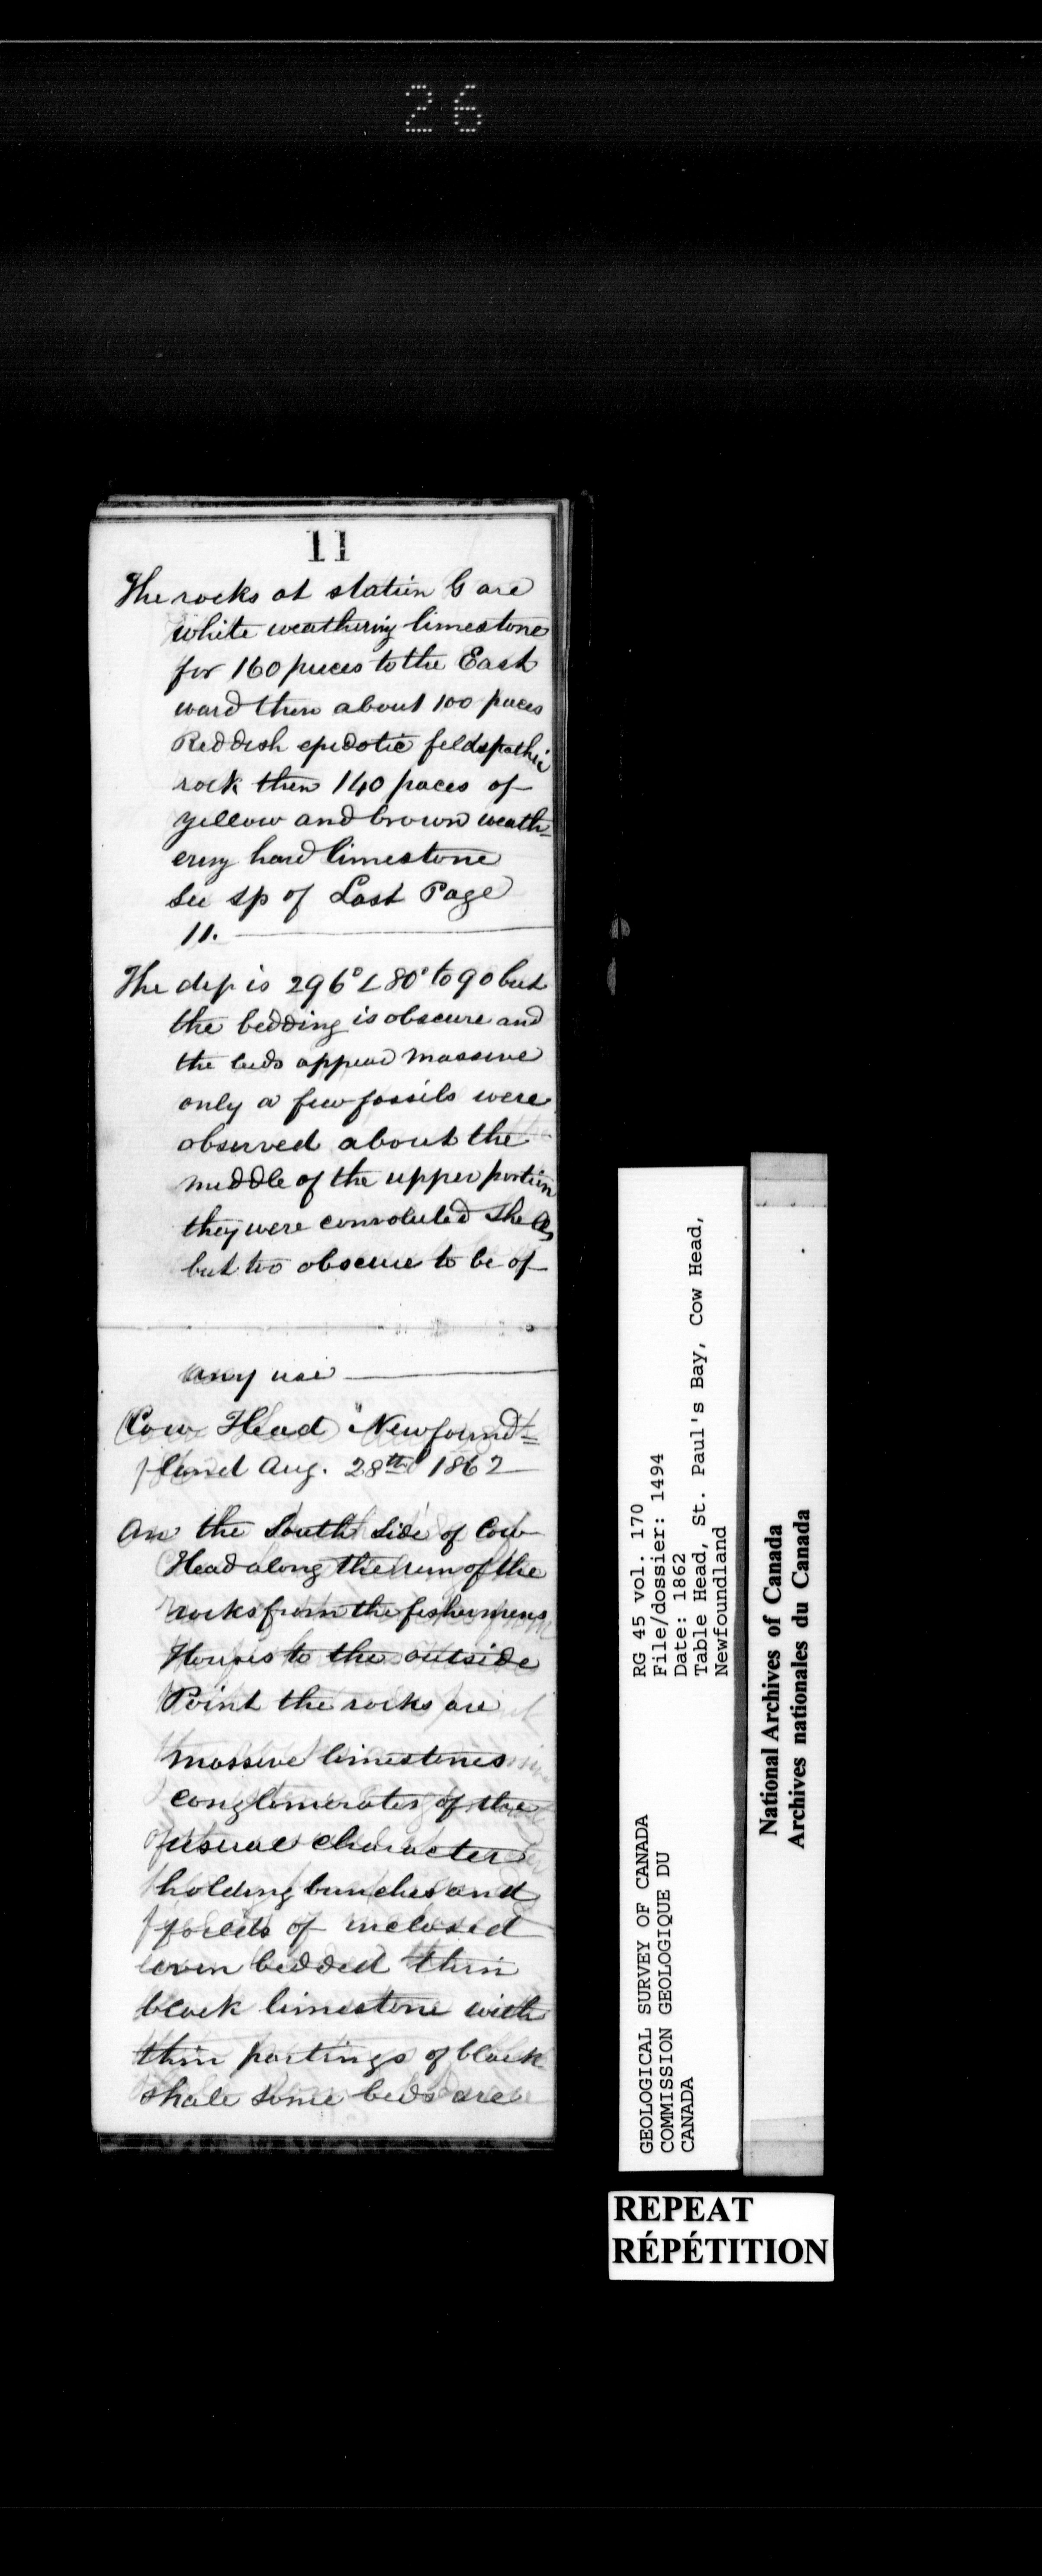 26
11
The rocks at station G are
white weathering limestone
for 160 paces to the East
ward then about 100 paces
Reddish epidotic feldspathic
rock then 140 paces of
yellow and brown weath=
ering hard limestone
See sp of Last Page
11.
The dip is 296° ∠ 80° to 90 but
the bedding is obscure and
the beds appear massive
only a few fossils were
observed about the
middle of the upper portion
they were convoluted shells
but too obscure to be of
any use
Cow Head Newfound=
land Aug. 28th 1862
On the South Side of Cow
Head along the run of the
rocks from the fishermens
Houses to the outside
Point the rocks are
massive limestones
conglomerates of the
usual character
holding bunches and
of inclosed
even bedded thin
black limestone with
thin partings of black
shale some beds are
GEOLOGICAL SURVEY OF CANADA
COMMISSION GEOLOGIQUE DU
CANADA
RG 45 vol. 170
File/dossier: 1494
Date: 1862
Table Head, St. Paul's Bay, Cow Head,
Newfoundland
National Archives of Canada
Archives nationales du Canada
REPEAT
RÉPÉTITION